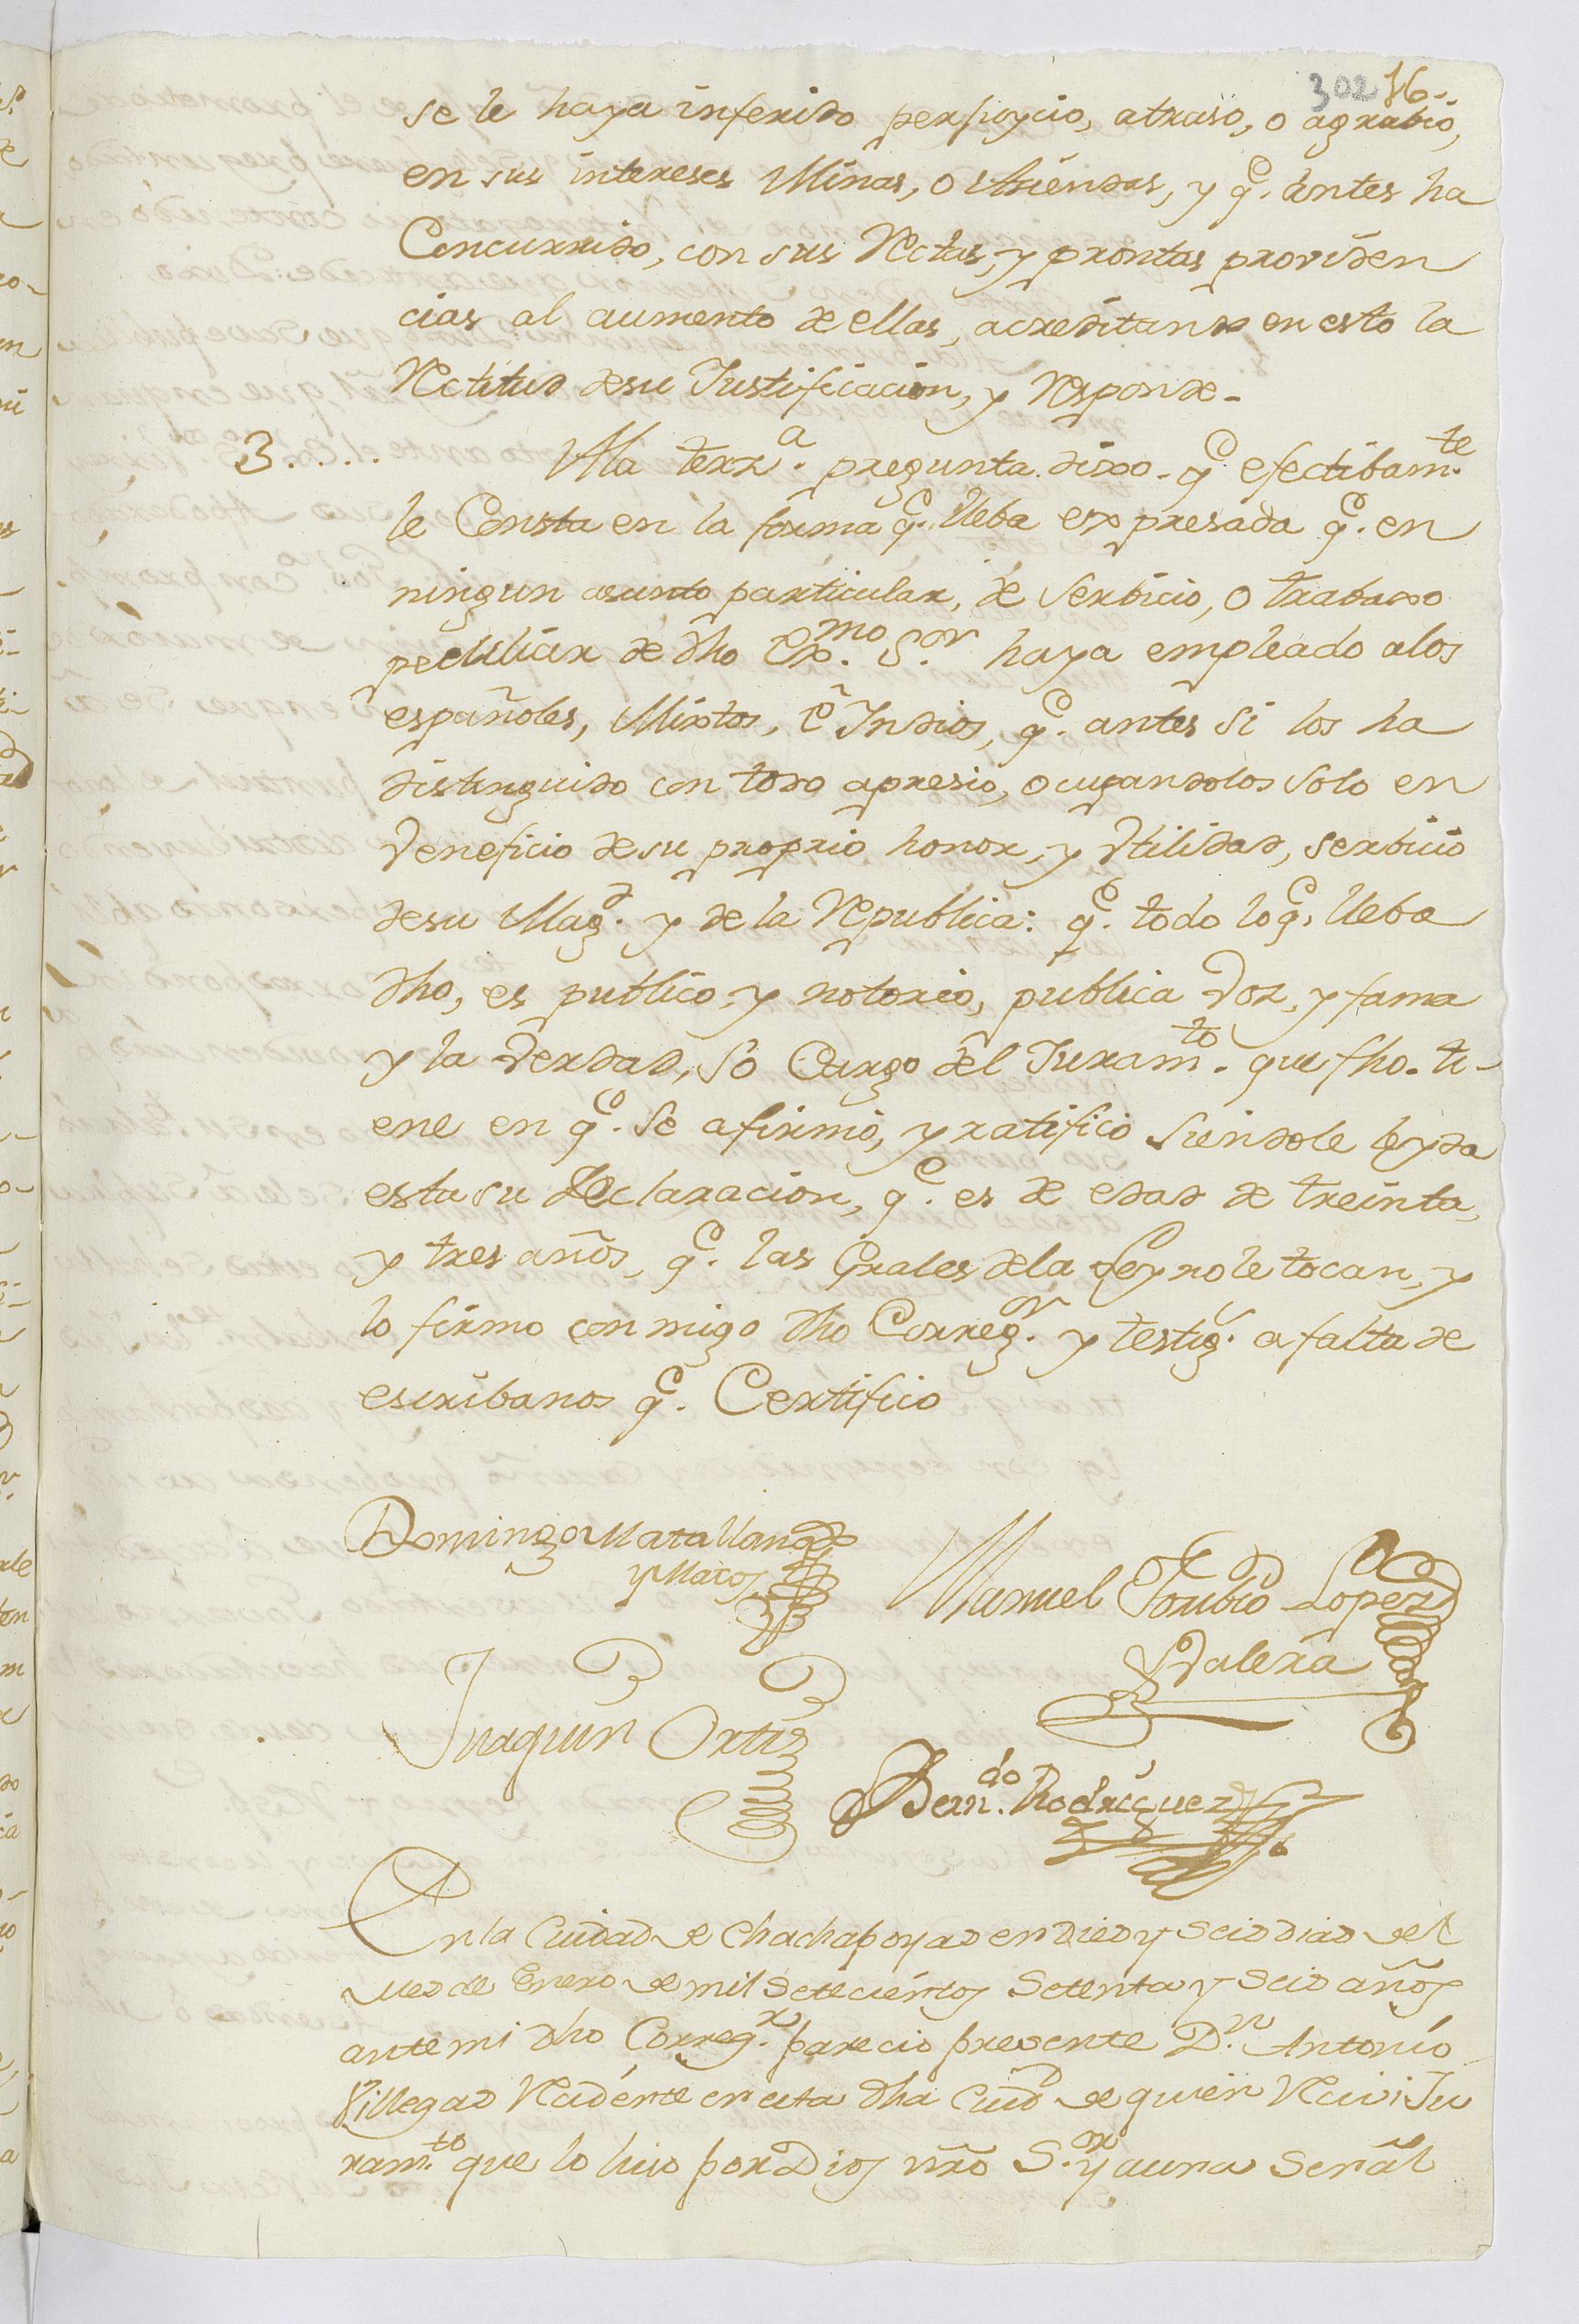 302 76.
se le haya inferido perjuycio, atraso, o agrabio,
en sus intereses Minas, o Asiendas, y q.e antes ha
Concurrido, con sus Rectas, y prontas providen
cias al aumento de ellas, acreditando en esto la
Rectitud desu Justificacion, y Responde-
3..... Ala terz.a pregunta dixo- q.e efectibam.te
le Consta en la forma q.e lleba expresada q.e en
ningun asunto particular, de Serbicio, o trabaxo
peculiar de dho Ex.mo S.or haya empleado alos
españoles, Mixtos, é Indios, q.e antes si los ha
distinguido con todo apresio, ocupandolos solo en
Veneficio desu proprio honor, y Vtilidad, serbicio
desu Mag.d y de la Republica: q.e todo loq.e lleba
dho, es publico, y notorio, publica Voz, y fama
y la Verdad, so Cargo del Juram.to que fho. ti-
ene en q.e se afirmó, y ratificó siendole leyda
esta su Declaracion, q.e es de edad de treinta,
y tres años, q.e las Grales dela Ley no le tocan, y
lo firmo con migo dho Correg.or y testig.s a falta de
escribanos q.e Certifico
Domingo Matallana
y Matos
Manuel Toribio Lopez
y Valera
Juaquin Ortiz
Bern.do Rodriguez
En la Ciudad de Chachapoyas en Dies y seis dias del
Mes de Enero de mil Setecientos Setenta y Seis años
ante mi dho Correg.r parecio presente D.n Antonio
Villegas Recidente en esta dha Ciud.d de quien Recivi Ju
ram.to que lo hiso por Dios nro S.or y auna Señal